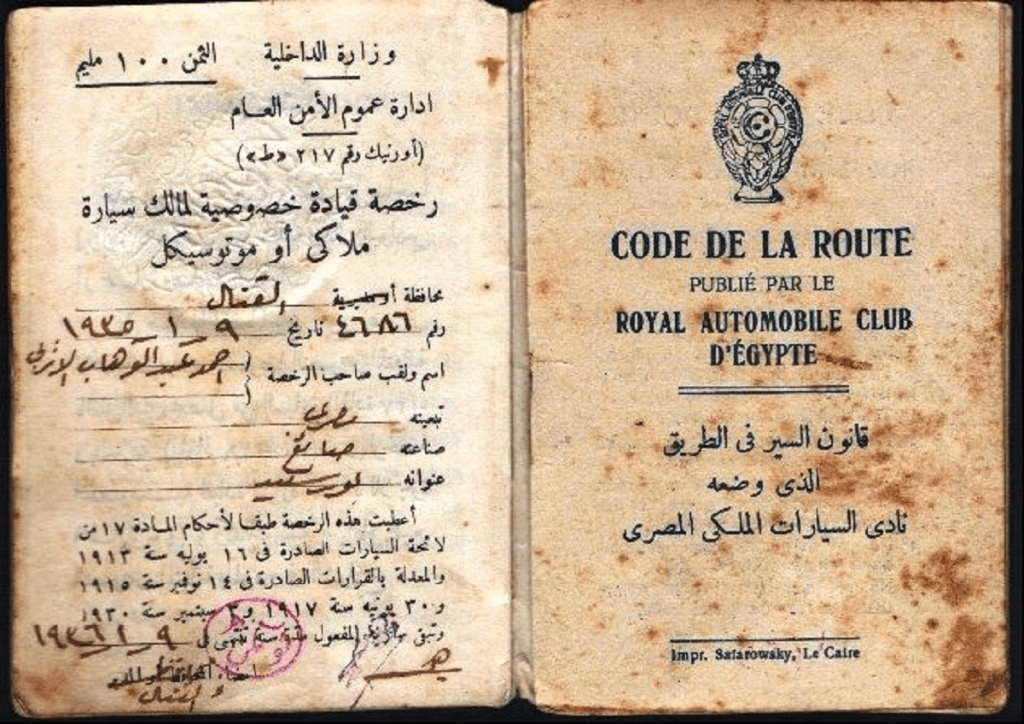 وزارة الداخلية
الثمن ١٠٠ مليم
ادارة عموم الأمن العام
(أورنيك رقم ٢١٧ «ط»)
رخصة قيادة خصوصية لمالك سيارة
ملاكى أو موتوسيكل
محافظة أو مديرية القنال
رقم ٤٦٨٦ تاريخ ٩ - ١ - ١٩٣٥
اسم ولقب صاحب الرخصة احمد عبد الوهاب
تبعيته مصرى
صناعته صايغ
عنوانه بورسعيد
أعطيت هذه الرخصة طبقا لأحكام المادة ١٧ من
لائحة السيارات الصادرة فى ١٦ يوليه سنة ١٩١٣
والمعدلة بالقرارات الصادرة فى ١٤ نوفمبر سنة ١٩١٥
و ٣٠ يونيه سنة ١٩١٧ و ٣ سبتمبر سنة ١٩٣٠
وتبقى سارية المفعول مدة سنة تنتهى فى ٩ - ١ - ١٩٣٦
القنال
CODE DE LA ROUTE
PUBLIÉ PAR LE
ROYAL AUTOMOBILE CLUB
D'ÉGYPTE
قانون السير فى الطريق
الذى وضعه
نادى السيارات الملكى المصرى
Impr. Safarowsky, Le Caire